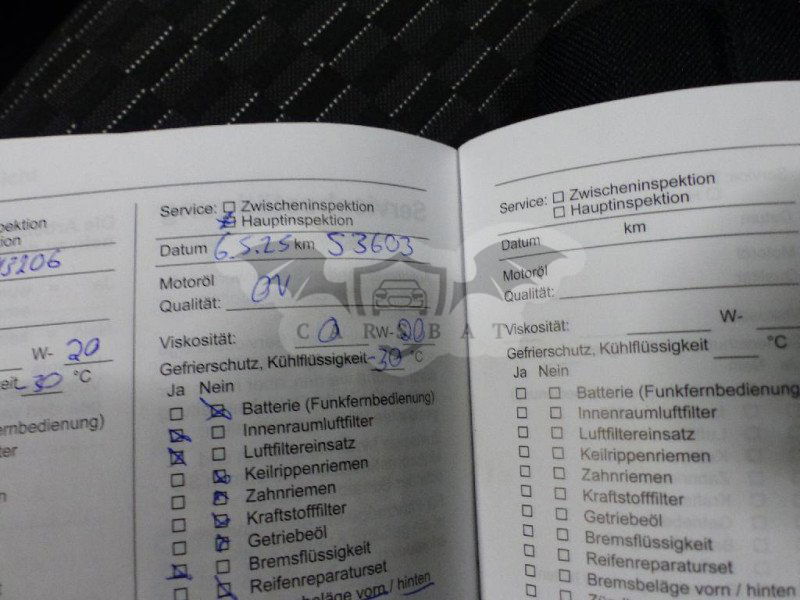 pektion
ion
3206
W- 20
eit -30 °C
fernbedienung)
ter
n
Service: Zwischeninspektion
Hauptinspektion
Datum 6.5.25 km 53603
Motoröl
Qualität: OV
Viskosität: 0 W-20
Gefrierschutz, Kühlflüssigkeit -30 °C
Ja Nein
Batterie (Funkfernbedienung)
Innenraumluftfilter
Luftfiltereinsatz
Keilrippenriemen
Zahnriemen
Kraftstofffilter
Getriebeöl
Bremsflüssigkeit
Reifenreparaturset
Bremsbeläge vorn / hinten
Service: Zwischeninspektion
Hauptinspektion
Datum km
Motoröl
Qualität:
Viskosität: W-
Gefrierschutz, Kühlflüssigkeit °C
Ja Nein
Batterie (Funkfernbedienung
Innenraumluftfilter
Luftfiltereinsatz
Keilrippenriemen
Zahnriemen
Kraftstofffilter
Getriebeöl
Bremsflüssigkeit
Reifenreparaturset
Bremsbeläge vorn / hinten
CARSBAT